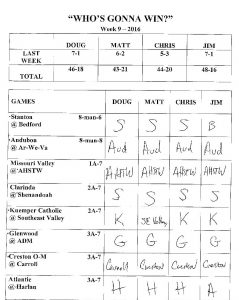 "WHO'S GONNA WIN?"
Week 9 – 2016
DOUG MATT CHRIS JIM
LAST WEEK 7-1 6-2 5-3 7-1
TOTAL 46-18 43-21 44-20 48-16
GAMES DOUG MATT CHRIS JIM
Stanton 8-man-6
@ Bedford S S S B
Audubon 8-man-8
@ Ar-We-Va Aud Aud Aud Aud
Missouri Valley 1A-7
@ AHSTW AHSTW AHSTW AHSTW AHSTW
Clarinda 2A-7
@ Shenandoah S S S S
Kuemper Catholic 2A-7
@ Southeast Valley K SE Valley K K
Glenwood 3A-7
@ ADM G G G G
Creston O-M 3A-7
@ Carroll Carroll Creston Creston Creston
Atlantic 3A-7
@ Harlan H H H A